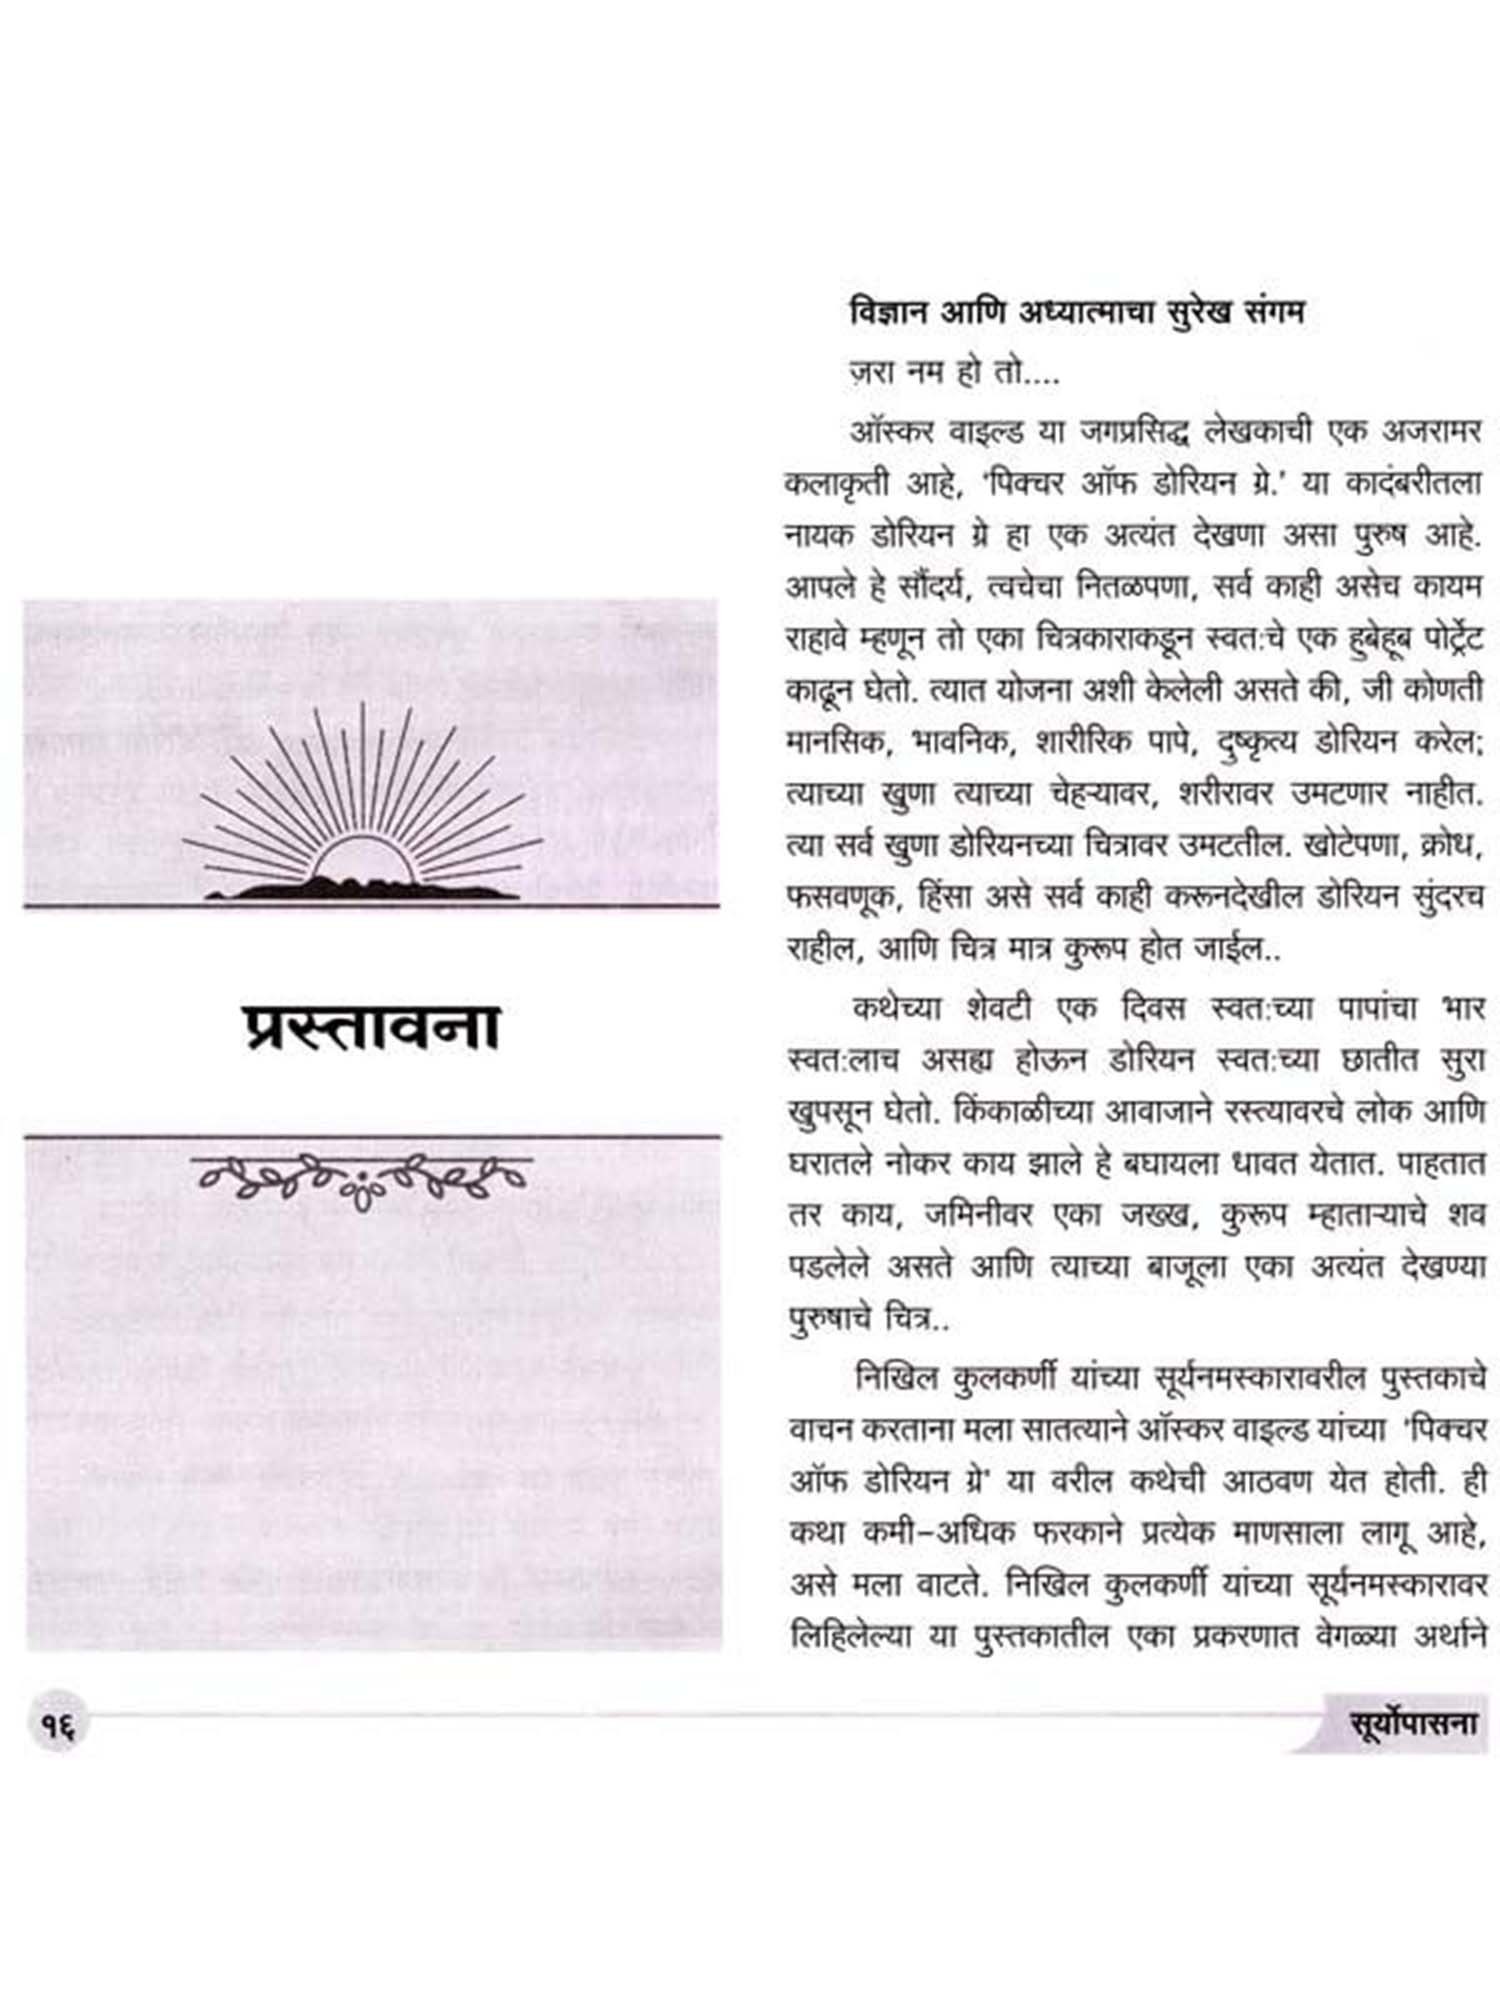 प्रस्तावना
विज्ञान आणि अध्यात्माचा सुरेख संगम
ज़रा नम हो तो....
ऑस्कर वाइल्ड या जगप्रसिद्ध लेखकाची एक अजरामर
कलाकृती आहे, 'पिक्चर ऑफ डोरियन ग्रे.' या कादंबरीतला
नायक डोरियन ग्रे हा एक अत्यंत देखणा असा पुरुष आहे.
आपले हे सौंदर्य, त्वचेचा नितळपणा, सर्व काही असेच कायम
राहावे म्हणून तो एका चित्रकाराकडून स्वत:चे एक हुबेहूब पोर्ट्रेट
काढून घेतो. त्यात योजना अशी केलेली असते की, जी कोणती
मानसिक, भावनिक, शारीरिक पापे, दुष्कृत्य डोरियन करेल;
त्याच्या खुणा त्याच्या चेहऱ्यावर, शरीरावर उमटणार नाहीत.
त्या सर्व खुणा डोरियनच्या चित्रावर उमटतील. खोटेपणा, क्रोध,
फसवणूक, हिंसा असे सर्व काही करूनदेखील डोरियन सुंदरच
राहील, आणि चित्र मात्र कुरूप होत जाईल..
कथेच्या शेवटी एक दिवस स्वत:च्या पापांचा भार
स्वत:लाच असह्य होऊन डोरियन स्वत:च्या छातीत सुरा
खुपसून घेतो. किंकाळीच्या आवाजाने रस्त्यावरचे लोक आणि
घरातले नोकर काय झाले हे बघायला धावत येतात. पाहतात
तर काय, जमिनीवर एका जख्ख, कुरूप म्हाताऱ्याचे शव
पडलेले असते आणि त्याच्या बाजूला एका अत्यंत देखण्या
पुरुषाचे चित्र..
निखिल कुलकर्णी यांच्या सूर्यनमस्कारावरील पुस्तकाचे
वाचन करताना मला सातत्याने ऑस्कर वाइल्ड यांच्या 'पिक्चर
ऑफ डोरियन ग्रे' या वरील कथेची आठवण येत होती. ही
कथा कमी-अधिक फरकाने प्रत्येक माणसाला लागू आहे,
असे मला वाटते. निखिल कुलकर्णी यांच्या सूर्यनमस्कारावर
लिहिलेल्या या पुस्तकातील एका प्रकरणात वेगळ्या अर्थाने
१६
सूर्योपासना